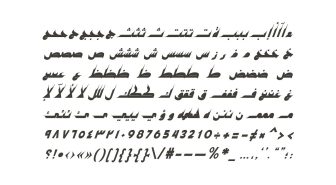 ء ا أ آ إ ب ببب ة ت تتت ث ثثث ج ججج ح ححح
خ خخخ د ذ ر ز س سسس ش ششش ص صصص
ض ضضض ط ططط ظ ظظظ ع ععع
غ غغغ ف ففف ق ققق ك ككك ل للل لا لأ لإ لآ
م ممم ن ننن ه ههه و ؤ ي ييي ى ئ ئئئ
٩٨٧٦٥٤٣٢١٠ 9876543210 ÷+=-≠^><
؟!•‹›«»()[]{}\/#-–—%*_